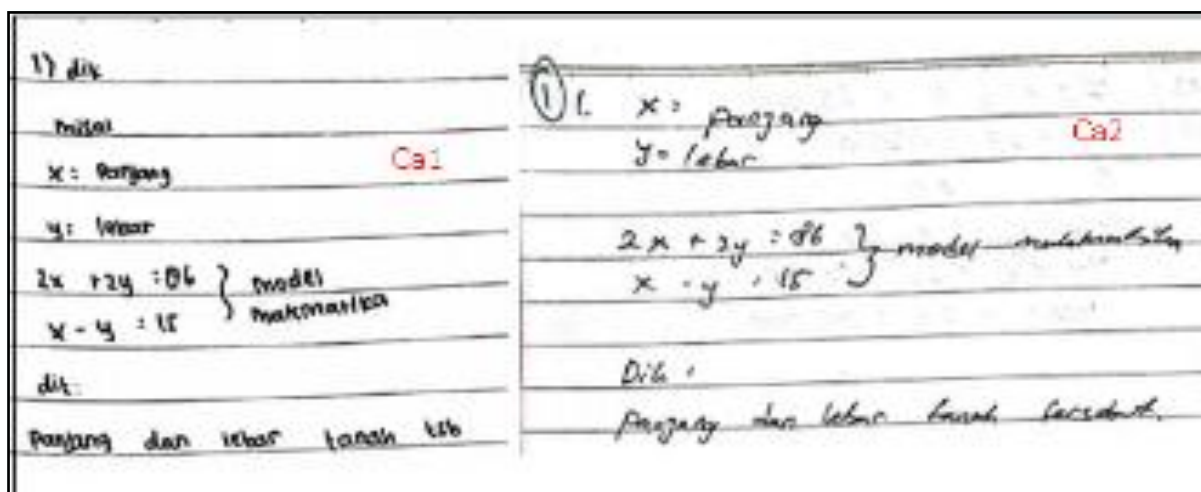 1) dik
misal
x = Panjang
Ca1
y = lebar
2x + 2y = 86 } model
x - y = 15 } matematika
dit:
Panjang dan lebar tanah tsb
1 1. x = panjang
Ca2
y = lebar
2x + 2y = 86 } model matematika
x - y = 15
Dit :
panjang dan lebar tanah tersebut.